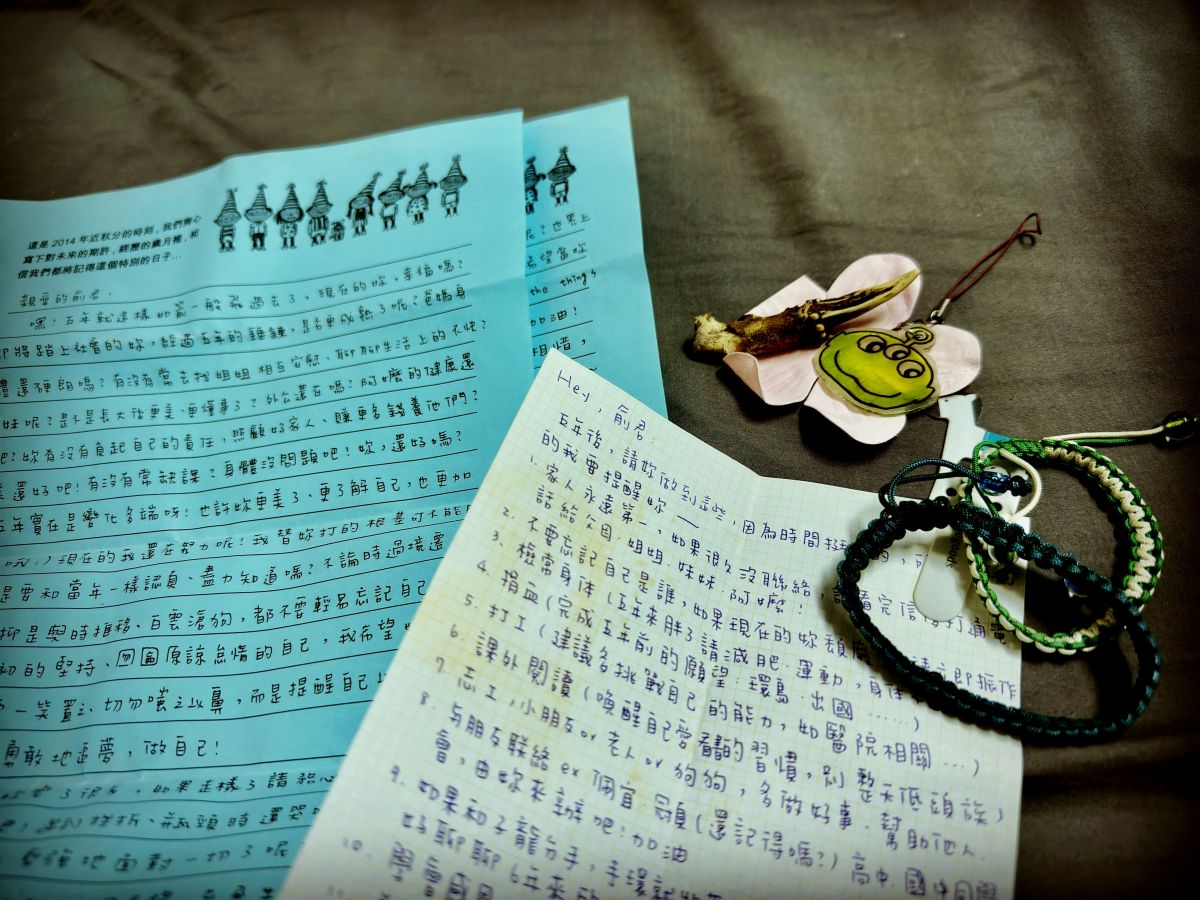 這是 2014 年近秋分的時刻，我們齊心
寫下對未來的期許，經歷的歲月裡，相
信我們都將記得這個特別的日子…
親愛的俞君：
嘿！五年就這樣如箭一般飛過去了，現在的妳，幸福嗎？
即將踏上社會的妳，經過五年的錘鍊，是否更成熟了呢？爸媽身
體還硬朗嗎？有沒有常去找姐姐相互安慰、聊聊生活上的不快？
妹呢？是不是長大後更美、更懂事了？外公還在嗎？阿嬤的健康還
吧？妳有沒有負起自己的責任，照顧好家人、賺更多錢養他們？
還好吧！有沒有常缺課？身體沒問題吧！妳，還好嗎？
五年實在是變化多端呀！也許妳更美了、更了解自己，也更加
現在的我還在努力呢！我替妳打的根基可不能
是要和當年一樣認真、盡力知道嗎？不論時過境遷
抑是與時推移、白雲滄狗，都不要輕易忘記自己
初的堅持、原諒怠惰的自己，我希望
一笑置之、切勿嗤之以鼻，而是提醒自己
勇敢地追夢，做自己！
了很多，如果走樣了請
挫折、瓶頸時還哭
地面對一切了呢
呢？也界上
希望當妳
the things
加油！
相惜，
Hey，俞君：
五年後，請妳做到這些，因為時間
的我要提醒妳——
1. 家人永遠第一，如果很久沒聯絡，請看完信後打通
話給父母.姐姐.妹妹.阿嬤！
2. 不要忘記自己是誰，如果現在的妳頹廢，請立即振作
3. 檢常身体（五年來胖了請減肥.運動，身体
4. 捐血（完成五年前的願望.環島.出國……）
5. 打工（建議多挑戰自己的能力，如醫院相關…）
6. 課外閱讀（喚醒自己愛看書的習慣，別整天低頭族）
7. 志工，小朋友 or 老人 or 狗狗，多做好事.幫助他人.
8. 与朋友聯絡 ex 佩宜.冠貞（還記得嗎？）高中.國中同學
會，由妳來辦吧！加油
9. 如果和子龍分手，手環就
好聊聊 6年來的
10. 學會感恩